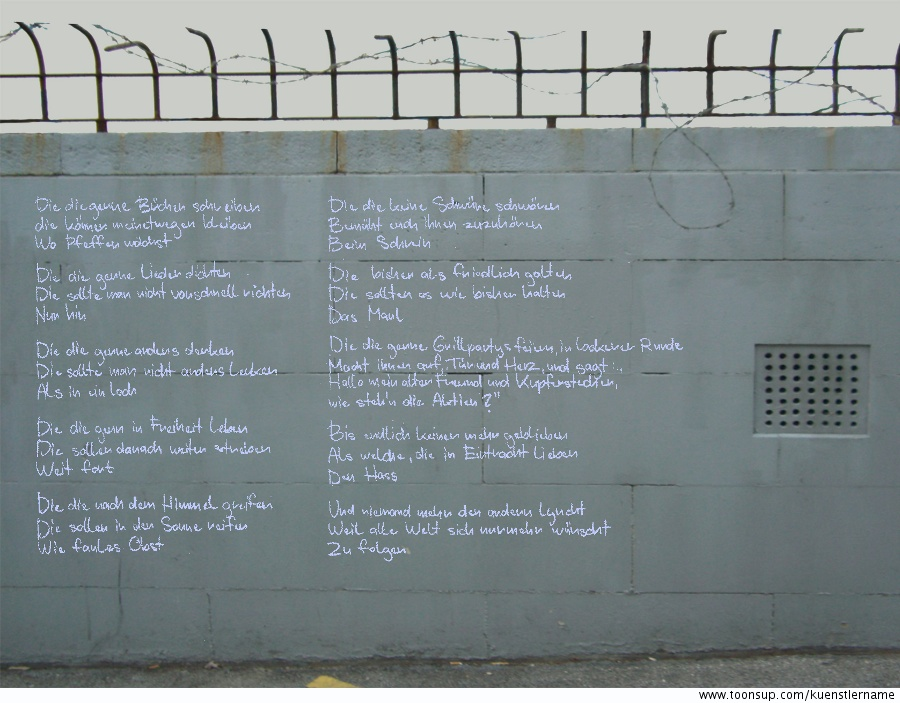 Die die gerne Bücher schreiben
die können meinetwegen bleiben
Wo Pfeffer wächst
Die die gerne Lieder dichten
Die sollte man nicht vorschnell richten
Nur hin
Die die gerne anders denken
Die sollte man nicht anders lenken
Als in ein Loch
Die die gern in Freiheit leben
Die sollen danach weiter streben
Weit fort
Die die nach dem Himmel greifen
Die sollen in der Sonne reifen
Wie faules Obst
Die die keine Schwüre schwören
Bemüht euch ihnen zuzuhören
Beim Schrein
Die bisher als friedlich galten
Die sollten es wie bisher halten
Das Maul
Die die gerne Grillpartys feiern, in lockerer Runde
Macht ihnen auf, Tür und Herz, und sagt:
Hallo mein alter Freund und Kupferstecher,
wie steh'n die Aktien?"
Bis endlich keiner mehr geblieben
Als welche, die in Eintracht lieben
Den Hass
Und niemand mehr den andern lyncht
Weil alle Welt sich nunmehr wünscht
Zu folgen
www.toonsup.com/kuenstlername